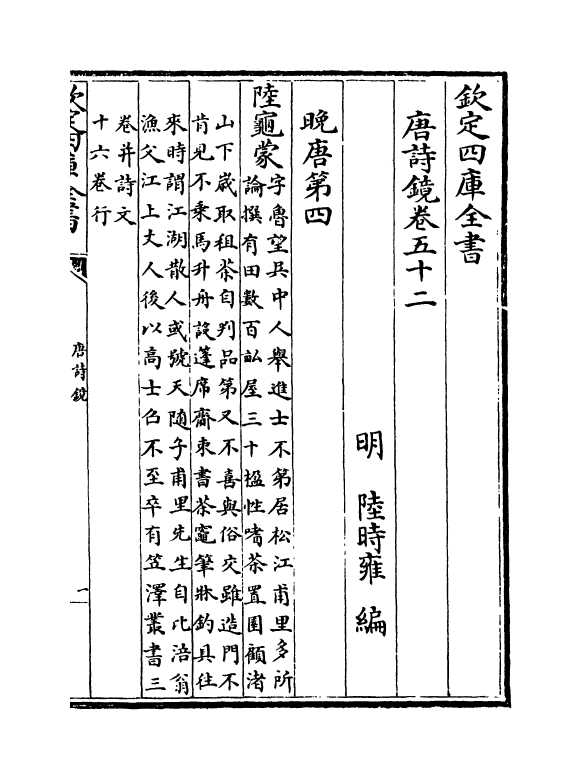 欽定四庫全書
唐詩鏡卷五十二
明 陸時雍 編
晚唐第四
陸龜蒙 字魯望吳中人舉進士不第居松江甫里多所
論撰有田數百畝屋三十楹性嗜茶置園顧渚
山下歲取租茶自判品第又不喜與俗交雖造門不
肯見不乘馬升舟設蓬席齋束書茶竈筆牀釣具往
來時謂江湖散人或號天隨子甫里先生自比涪翁
漁父江上丈人後以高士召不至卒有笠澤叢書三
卷并詩文
十六卷行
欽定四庫全書
唐詩鏡
一